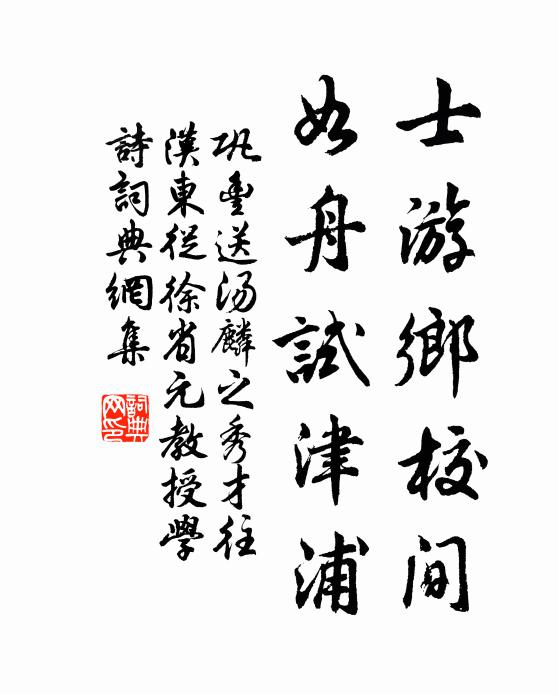 士游鄉校間
如舟試津浦
巩豐送汤麟之秀才往
漢東從徐省元教授學
詩詞典網集
詞典
网印